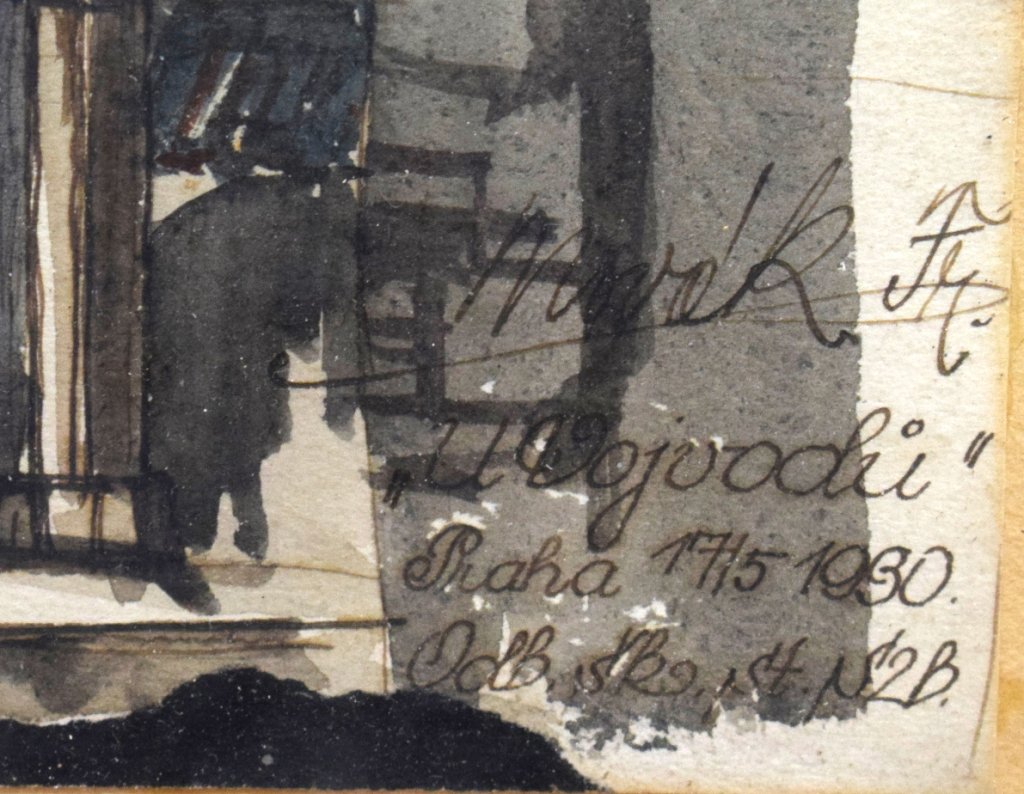 Novák Fr.
„U Vojvodů"
Praha 17/5 1930.
Odb. šk. st. S2B.